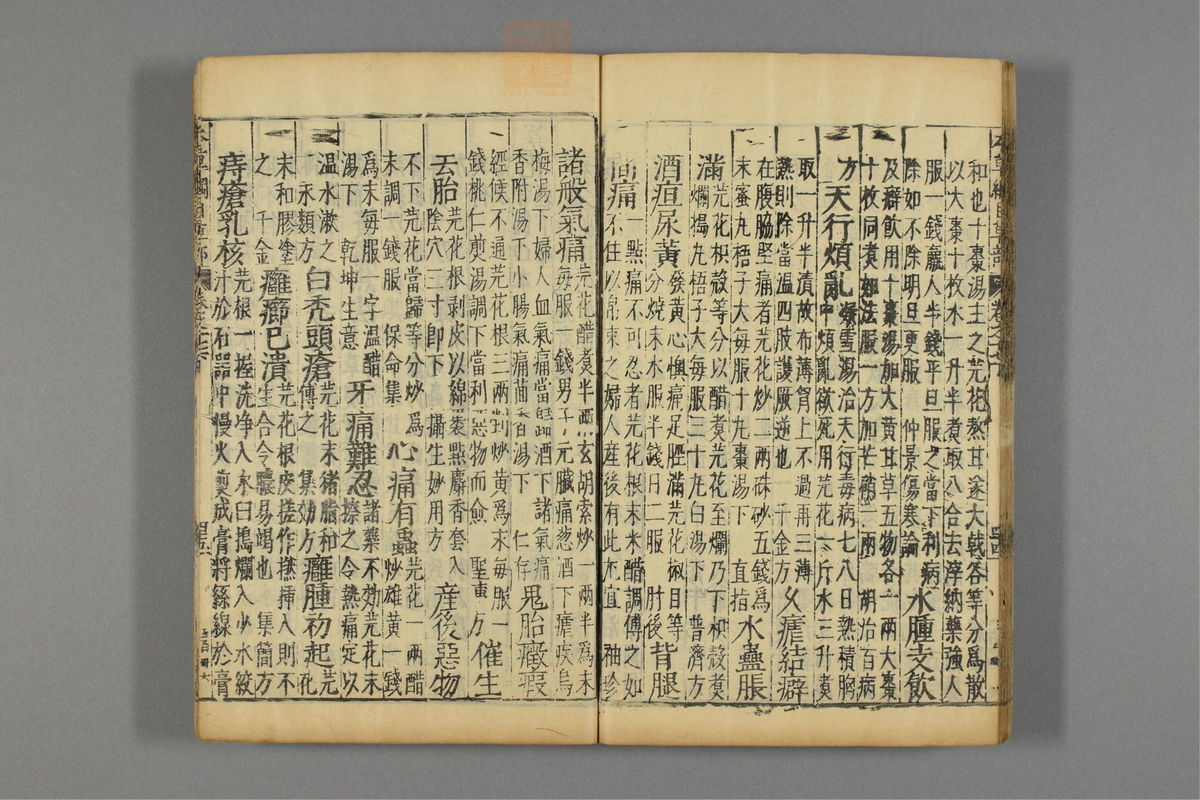 本草綱目草部 卷之十七下 四十四
和也十棗湯主之芫花熬甘遂大戟各等分爲散
以大棗十枚水一升半煮取八合去滓納藥強人
服一錢羸人半錢平旦服之當下利病
除如不除明旦更服 仲景傷寒論 水腫支飲
及癖飲用十棗湯加大黄甘草五物各一兩大棗
十枚同煮如法服一方加芒硝一兩 胡洽百病
方 天行煩亂 凝雪湯治天行毒病七八日熱積胸
中煩亂欲死用芫花一斤水三升煮
取一升半漬故布薄胷上不過再三薄
熱則除當温四肢護厥逆也 千金方 久瘧結癖
在腹脇堅痛者芫花炒二兩硃砂五錢爲
末蜜丸梧子大每服十丸棗湯下 直指 水蠱脹
滿 芫花枳殼等分以醋煮芫花至爛乃下枳殼煮
爛搗丸梧子大每服三十丸白湯下 普濟方
酒疸尿黄 發黄心懊痛足脛滿芫花椒目等
分燒末水服半錢日二服 肘後 背腿
間痛 一點痛不可忍者芫花根末米醋調傅之如
不住以帛束之婦人産後有此尤宜 袖珍
諸般氣痛 芫花醋煮半兩玄胡索炒一兩半爲末
每服一錢男子元臟痛葱酒下瘧疾烏
梅湯下婦人血氣痛當歸酒下諸氣痛
香附湯下小腸氣痛茴香湯下 仁存 鬼胎癥瘕
經候不通芫花根三兩剉炒黄爲末每服一
錢桃仁煎湯調下當利惡物而愈 聖惠方 催生
去胎 芫花根剥皮以綿裹點麝香套入
陰穴三寸即下 攝生妙用方 産後惡物
不下 芫花當歸等分炒爲
末調一錢服 保命集 心痛有蟲 芫花一兩醋
炒雄黄一錢
爲末每服一字温醋
湯下 乾坤生意 牙痛難忍 諸藥不効芫花末
擦之令熱痛定以
温水漱之
永類方 白禿頭瘡 芫花末猪脂和
傅之 集効方 癰腫初起 芫花
末和膠塗
之 千金 癰癤已潰 芫花根皮搓作撚插入則不
生合令膿易竭也 集簡方
痔瘡乳核 芫根一握洗净入木臼搗爛入少水絞
汁於石器中慢火煎成膏將絲線於膏